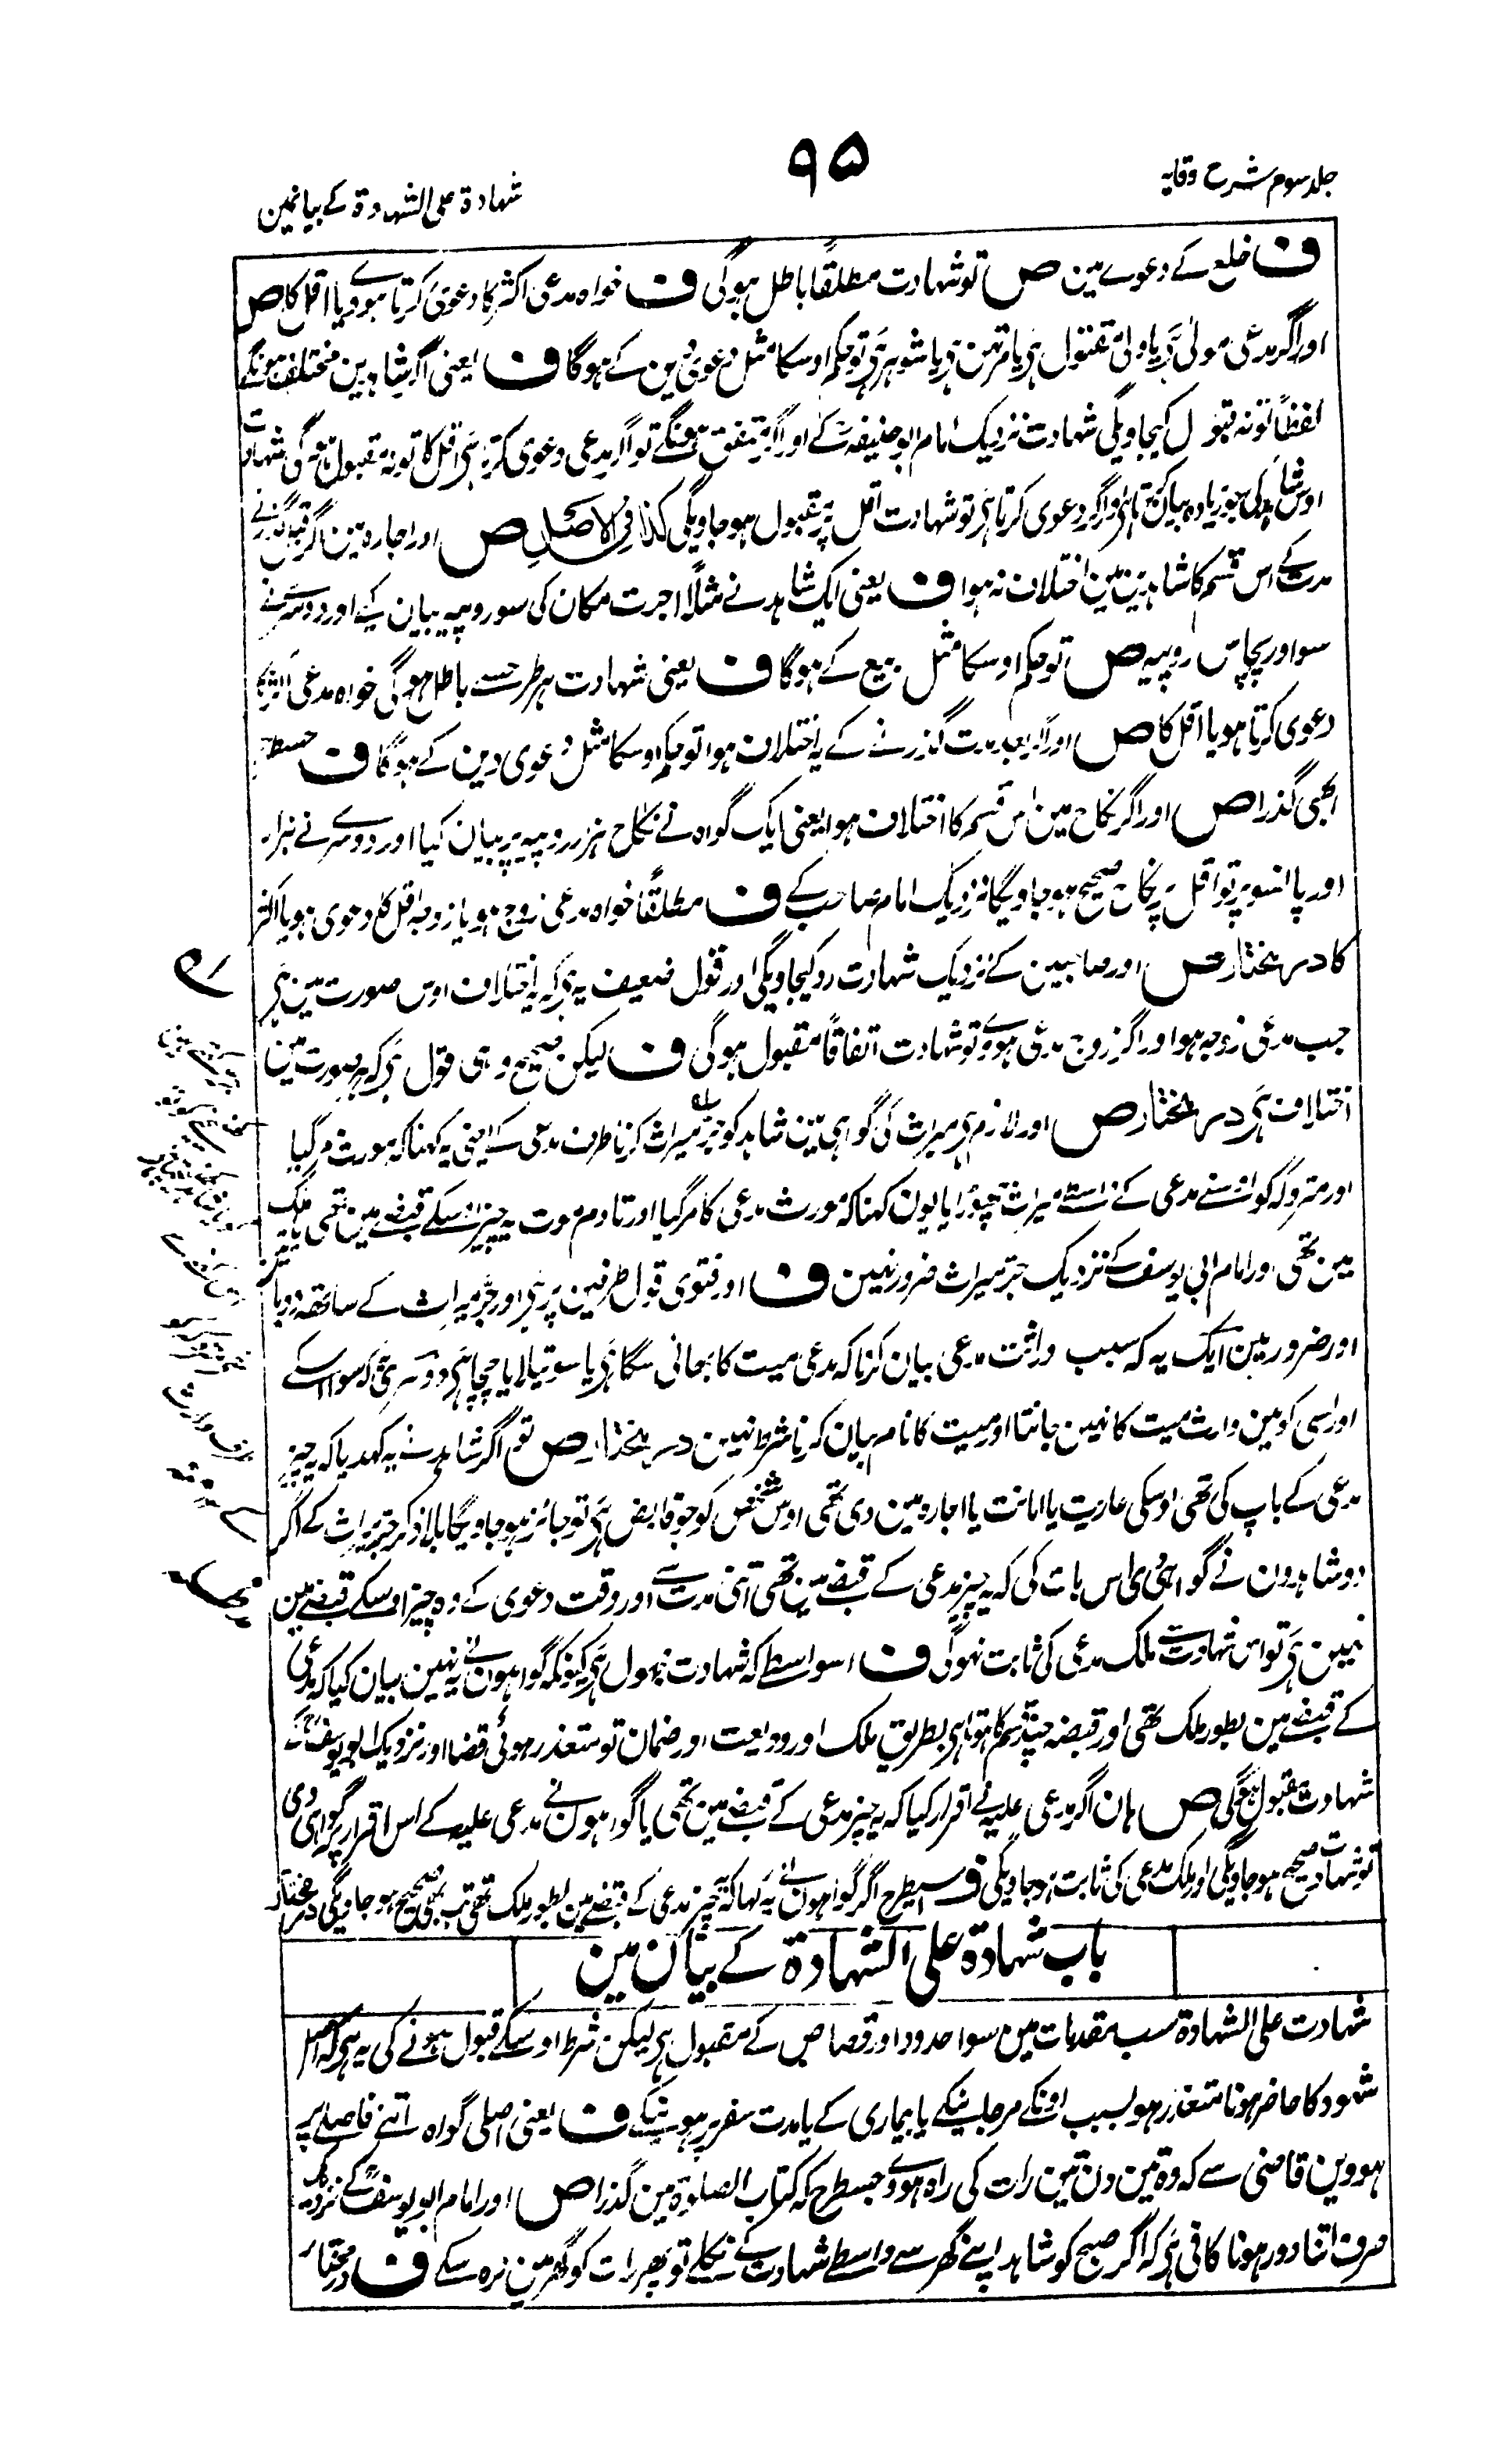 جلد سوم شرح وقایہ
۹۵
شہادۃ علی الشہادۃ کے بیانمین
ف خلع کے دعوے مین ص تو شہادت مطلقًا باطل ہوگی ف خواہ مدعی اکثر کا دعوی کرتا ہووے یا اقل کا ص
اور اگر مدعی مولیٰ ہی یا ولی مقتول ہی یا مرتہن ہی یا شوہر ہی تو حکم اوسکا مثل دعویٰ دین کے ہوگا ف یعنی اگر شاہدین مختلف ہونگے
لفظًا تو نہ قبول کیجاویگی شہادت نزدیک امام ابو حنیفہؒ کے اور اگر متفق ہونگے تو اگر مدعی دعوی کرتا ہی اقل کا تو نہ مقبول ہوگی شہادت
اوس شاہد کی جو زیادہ بیان کرتا ہی اور اگر دعوی کرتا ہی تو شہادت اقل پر مقبول ہو جاویگی کذا فی الاصل ص اور اجارہ مین اگر قبل گذرنے
مدت کے اس قسم کا شاہدین مین اختلاف نہ ہوا ف یعنی ایک شاہد نے مثلًا اجرت مکان کی سو روپیہ بیان کیے اور دوسرے نے
سو اور پچاس روپیہ ص تو حکم اوسکا مثل بیع کے ہوگا ف یعنی شہادت ہر طرح سے باطل ہوگی خواہ مدعی اکثر کا
دعوی کرتا ہو یا اقل کا ص اور اگر بعد مدت گذرنے کے یہ اختلاف ہوا تو حکم اوسکا مثل دعوی دین کے ہوگا ف جسطرح
ابھی گذرا ص اور اگر نکاح مین اس قسم کا اختلاف ہوا یعنی ایک گواہ نے نکاح ہزار روپیہ پر بیان کیا اور دوسرے نے ہزار
اور پانسو پر تو اقل پر نکاح صحیح ہو جاویگا نزدیک امام صاحب کے ف مطلقًا خواہ مدعی زوج ہو یا زوجہ اقل کا دعوی ہو یا اکثر
کا در مختار ص اور صاحبین کے نزدیک شہادت رد کیجاویگی اور قول ضعیف یہ ہی کہ یہ اختلاف اوس صورت مین ہی
جب مدعی زوجہ ہو اور اگر زوج مدعی ہووے تو شہادت اتفاقًا مقبول ہوگی ف لیکن صحیح وہی قول ہی کہ ہر صورت مین
اختلاف ہی در مختار ص اور لازم ہی میراث کی گواہی مین شاہد کو جر میراث کرنا طرف مدعی کے یعنی یہ کہنا کہ مورث مر گیا
اور متروکہ کو اوسنے مدعی کے واسطے میراث چھوڑا یا یون کہنا کہ مورث مدعی کا مر گیا اور تا دم موت یہ چیز اوسکے قبضہ مین تھی یا ملک
مین تھی اور امام ابی یوسف کے نزدیک جر میراث ضرور نہین ف اور فتوی قول طرفین پر ہی اور جر میراث کے ساتھ دو باتین
اور ضرور ہین ایک یہ کہ سبب وراثت مدعی بیان کرنا کہ مدعی میت کا بھائی سگا ہی یا سوتیلا یا چچا ہی دوسرے یہ کہ سوا اسکے
اور اسی کو مین وارث میت کا نہین جانتا اور میت کا نام بیان کرنا شرط نہین در مختار ص تو اگر شاہد نے یہ کہدیا کہ یہ چیز
مدعی کے باپ کی تھی اوسکی عاریت یا امانت یا اجارہ مین دی تھی اوس شخص کو جو قابض ہی تو جائز ہو جاویگا بلا ذکر جر میراث کے اگر
دو شاہدون نے گواہی دی اس بات کی کہ یہ چیز مدعی کے قبضے مین تھی اتنی مدت سے اور وقت دعوی کے وہ چیز اوسکے قبضے مین
نہین ہی تو اس شہادت سے ملک مدعی کی ثابت نہوگی ف اسواسطے کہ شہادت مجہول ہی کیونکہ گواہون نے یہ نہین بیان کیا کہ مدعی
کے قبضے مین بطور ملک تھی اور قبضہ چند قسم کا ہوتا ہی بطریق ملک اور ودیعت اور ضمان تو متعذر ہوئی قضا اور نزدیک ابو یوسفؒ کے
شہادت مقبول ہوگی ص ہان اگر مدعی علیہ نے اقرار کیا کہ یہ چیز مدعی کے قبضے مین تھی یا گواہون نے مدعی علیہ کے اس اقرار پر گواہی دی
تو شہادت صحیح ہو جاویگی اور ملک مدعی کی ثابت ہو جاویگی ف اسیطرح اگر گواہون نے یہ کہا کہ یہ چیز مدعی کے قبضے مین بطور ملک تھی تب بھی صحیح ہو جاویگی در مختار
باب شہادۃ علی الشہادۃ کے بیان مین
شہادت علی الشہادۃ سب مقدمات مین سوا حدود اور قصاص کے مقبول ہی لیکن شرط اوسکے قبول ہونے کی یہ ہی کہ اصل
شہود کا حاضر ہونا متعذر ہو بسبب اونکے مرجانیکے یا بیماری کے یا مدت سفر پر ہونیکے ف یعنی اصلی گواہ اتنے فاصلے پر
ہووین قاضی سے کہ وہ تین دن تین رات کی راہ ہووے جسطرح کہ کتاب الصلوۃ مین گذرا ص اور امام ابو یوسفؒ کے نزدیک
صرف اتنا دور ہونا کافی ہی کہ اگر صبح کو شاہد اپنے گھر سے واسطے شہادت کے نکلے تو پھر رات کو گھر مین نرہ سکے ف در مختار